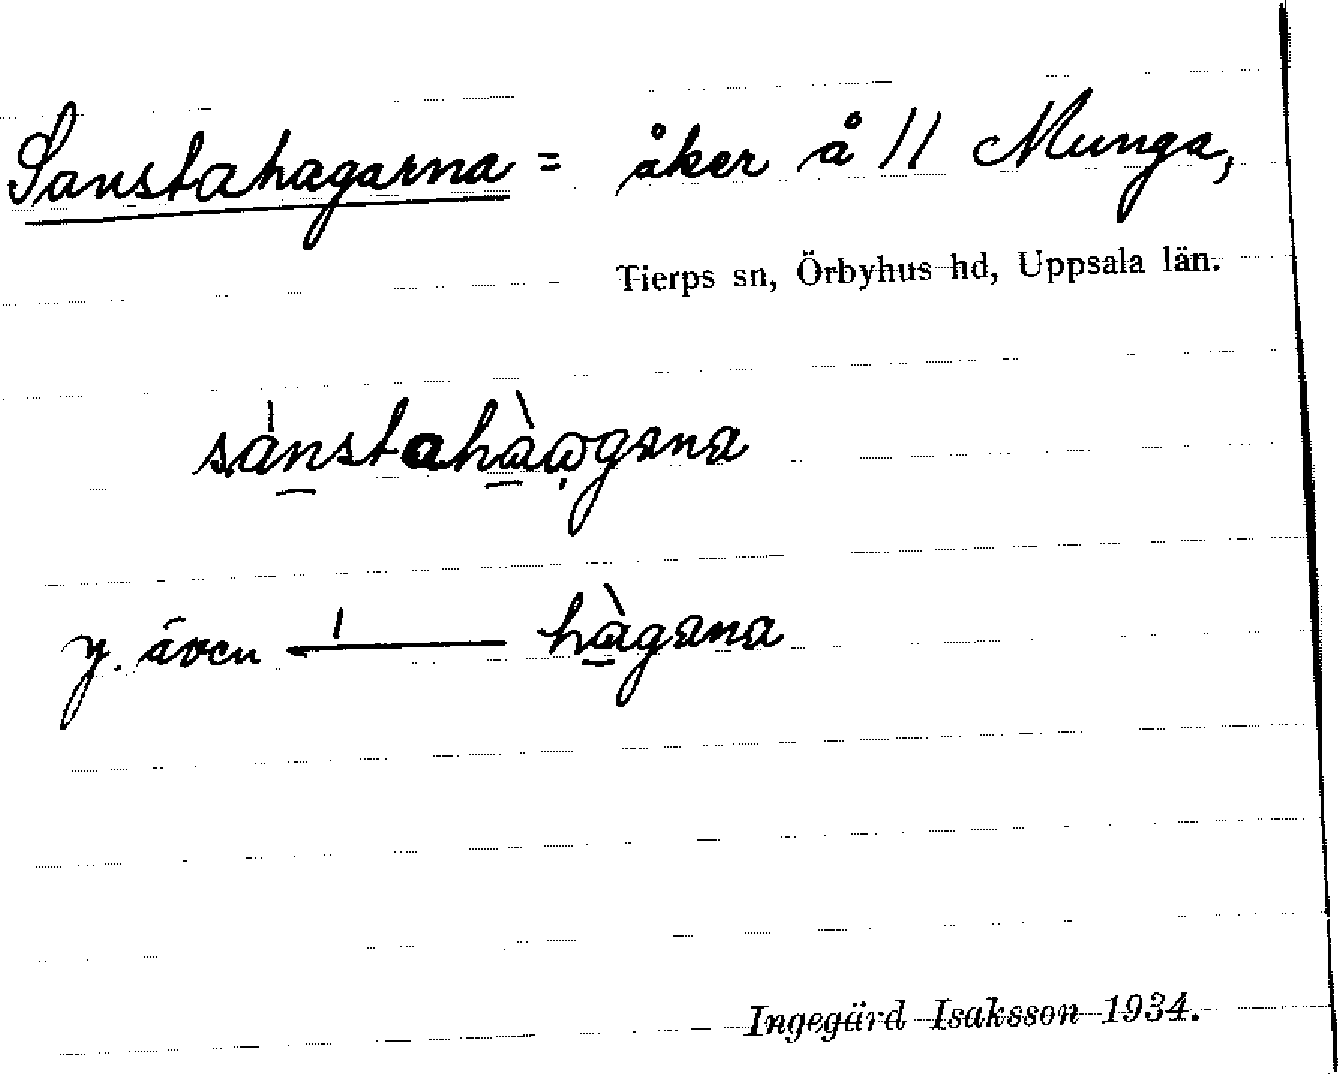 Sanstahagarna = åker å // Munga,
Tierps sn, Örbyhus hd, Uppsala län.
sànstahàωgana
y. även —— hàgana
Ingegärd Isaksson 1934.